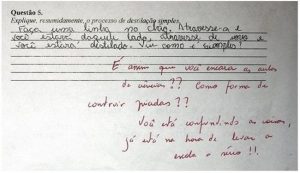 Questão 5.
Explique, resumidamente, o processo de destilação simples.
Faça uma linha no chão. Atravesse-a e
você estará daquele lado, atravesse de novo e
você estará destilado. Viu como é simples?
É assim que você encara as aulas
de ciências?? Como forma de
contruir piadas??
Você está confundindo as coisas,
já está na hora de levar a
escola a sério!!